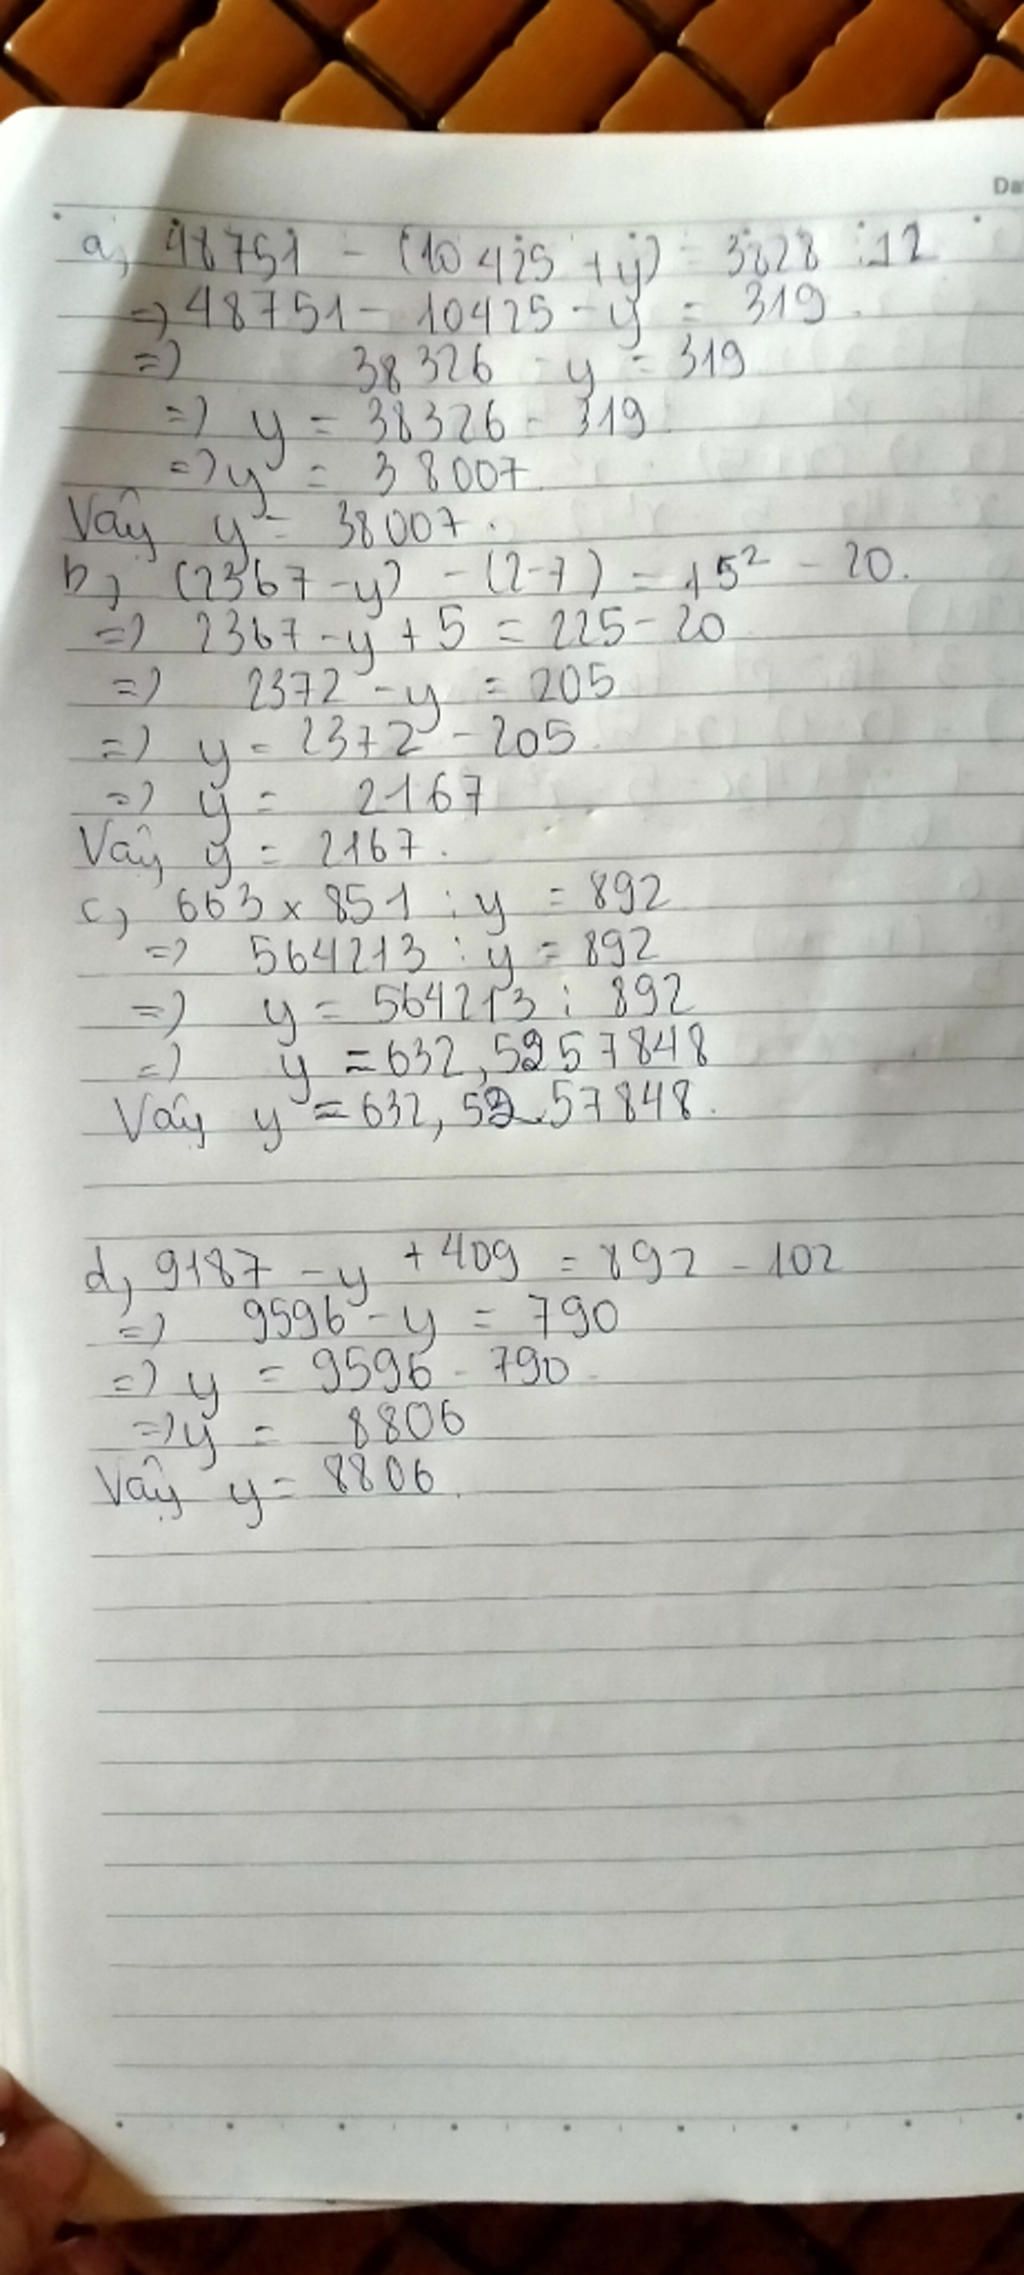 Da
a, 48751 - (10425 + y) = 3828 : 12
=> 48751 - 10425 - y = 319.
=> 38326 - y = 319
=> y = 38326 - 319
=> y = 38007
Vậy y = 38007.
b, (2367 - y) - (2-7) = 15² - 20.
=> 2367 - y + 5 = 225 - 20
=> 2372 - y = 205
=> y = 2372 - 205
=> y = 2167
Vậy y = 2167.
c, 663 x 851 : y = 892
=> 564213 : y = 892
=> y = 564213 : 892
=> y = 632,5257848
Vậy y = 632,5257848.
d, 9187 - y + 409 = 892 - 102
=> 9596 - y = 790
=> y = 9596 - 790
=> y = 8806
Vậy y = 8806.